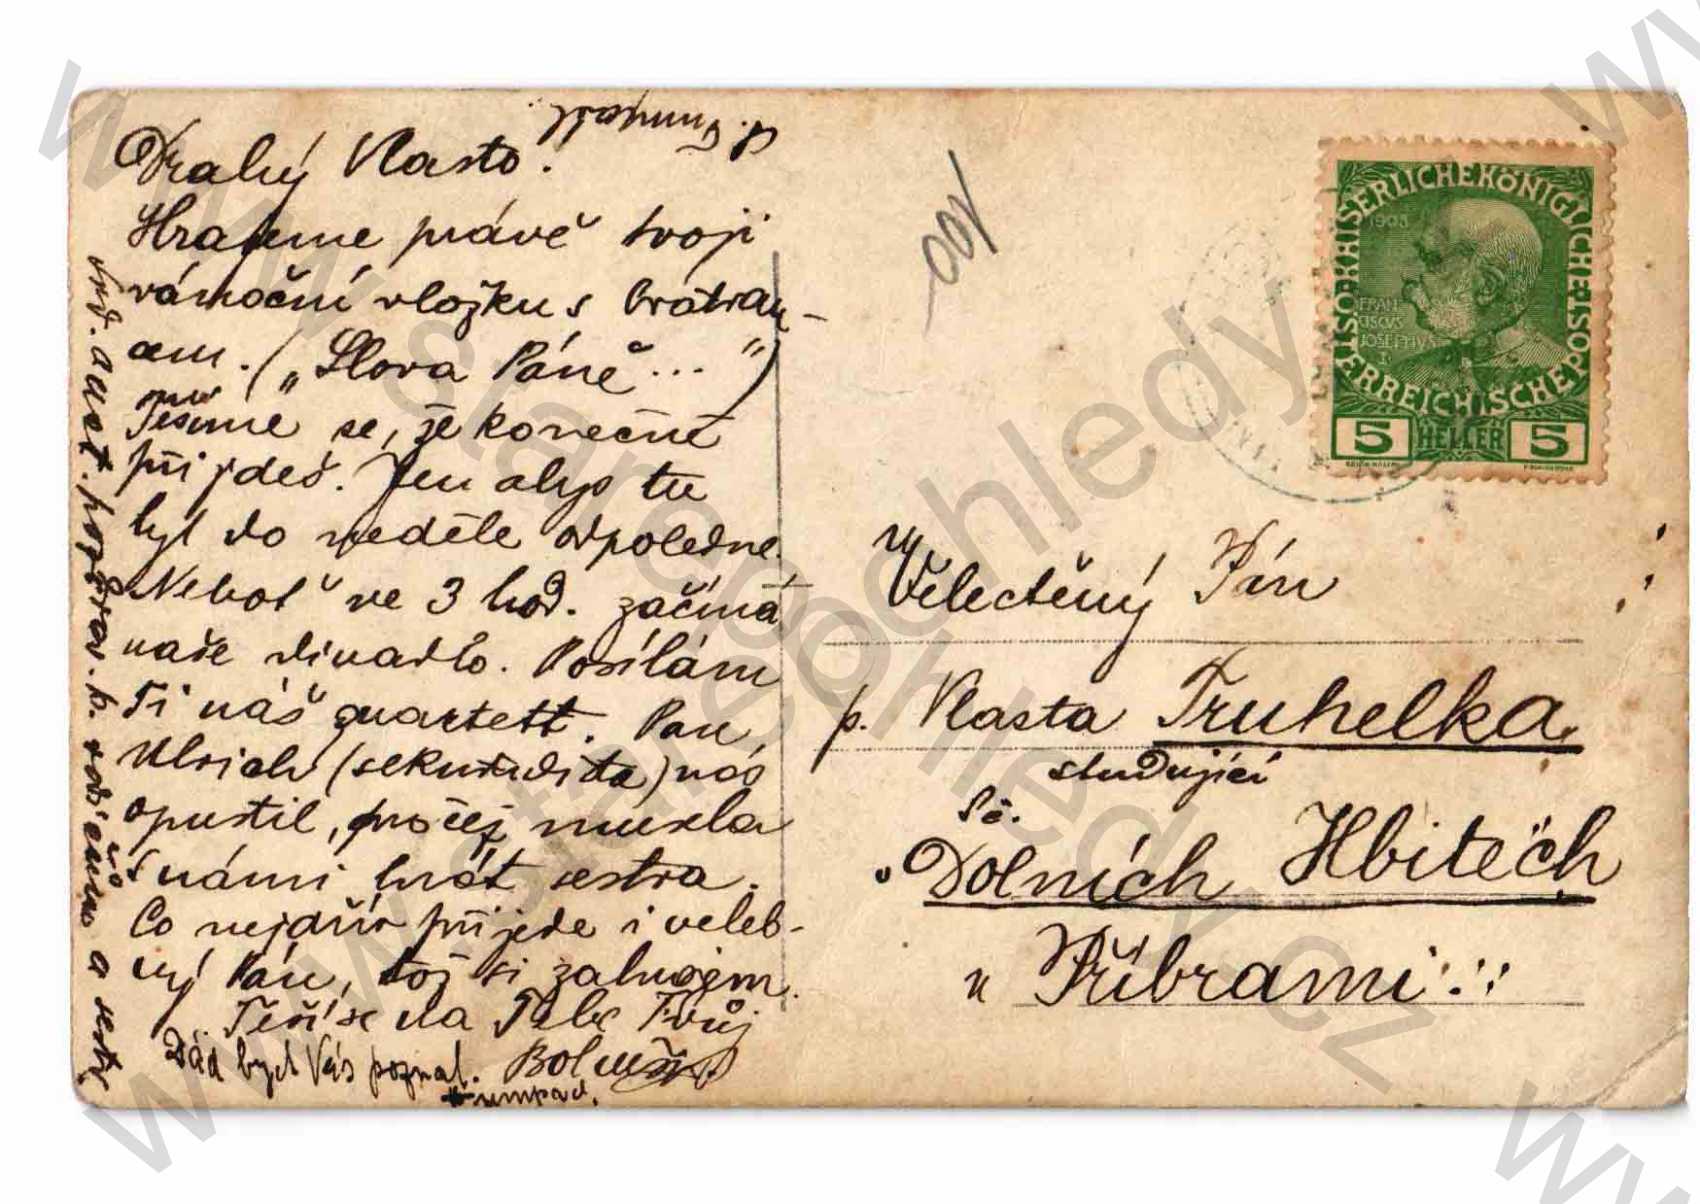 Drahý Vlasto!
Hrajeme právě tvoji
vánoční vložku s bratran-
cem. („Sláva Páně...")
Těšíme se, že konečně
přijdeš. Jen abys tu
byl do neděle odpoledne.
Neboť ve 3 hod. začíná
naše divadlo. Posílám
Ti náš quartett. Pan
Ulrich (sekundista) nás
opustil, pročež musela
s námi hrát sestra.
Co nejdřív přijede i veleb-
ný Pán, toť si zahrajem.
Těší se na Tebe Tvůj
Rád bych Vás poznal.
Trumpad.
Srd. a uct. pozdrav. p. rodičům a sestř.
100
ÖSTERREICHISCHE POST KAISERLICHEKÖNIGLICHE
1908
FRAN
CISCUS
JOSEPHUS
I
5 HELLER 5
Velectěný Pán
p. Vlasta Truhelka
studující
v Dolních Hbitech
u Příbrami
www.staropohledy.cz
www.staropohledy.cz